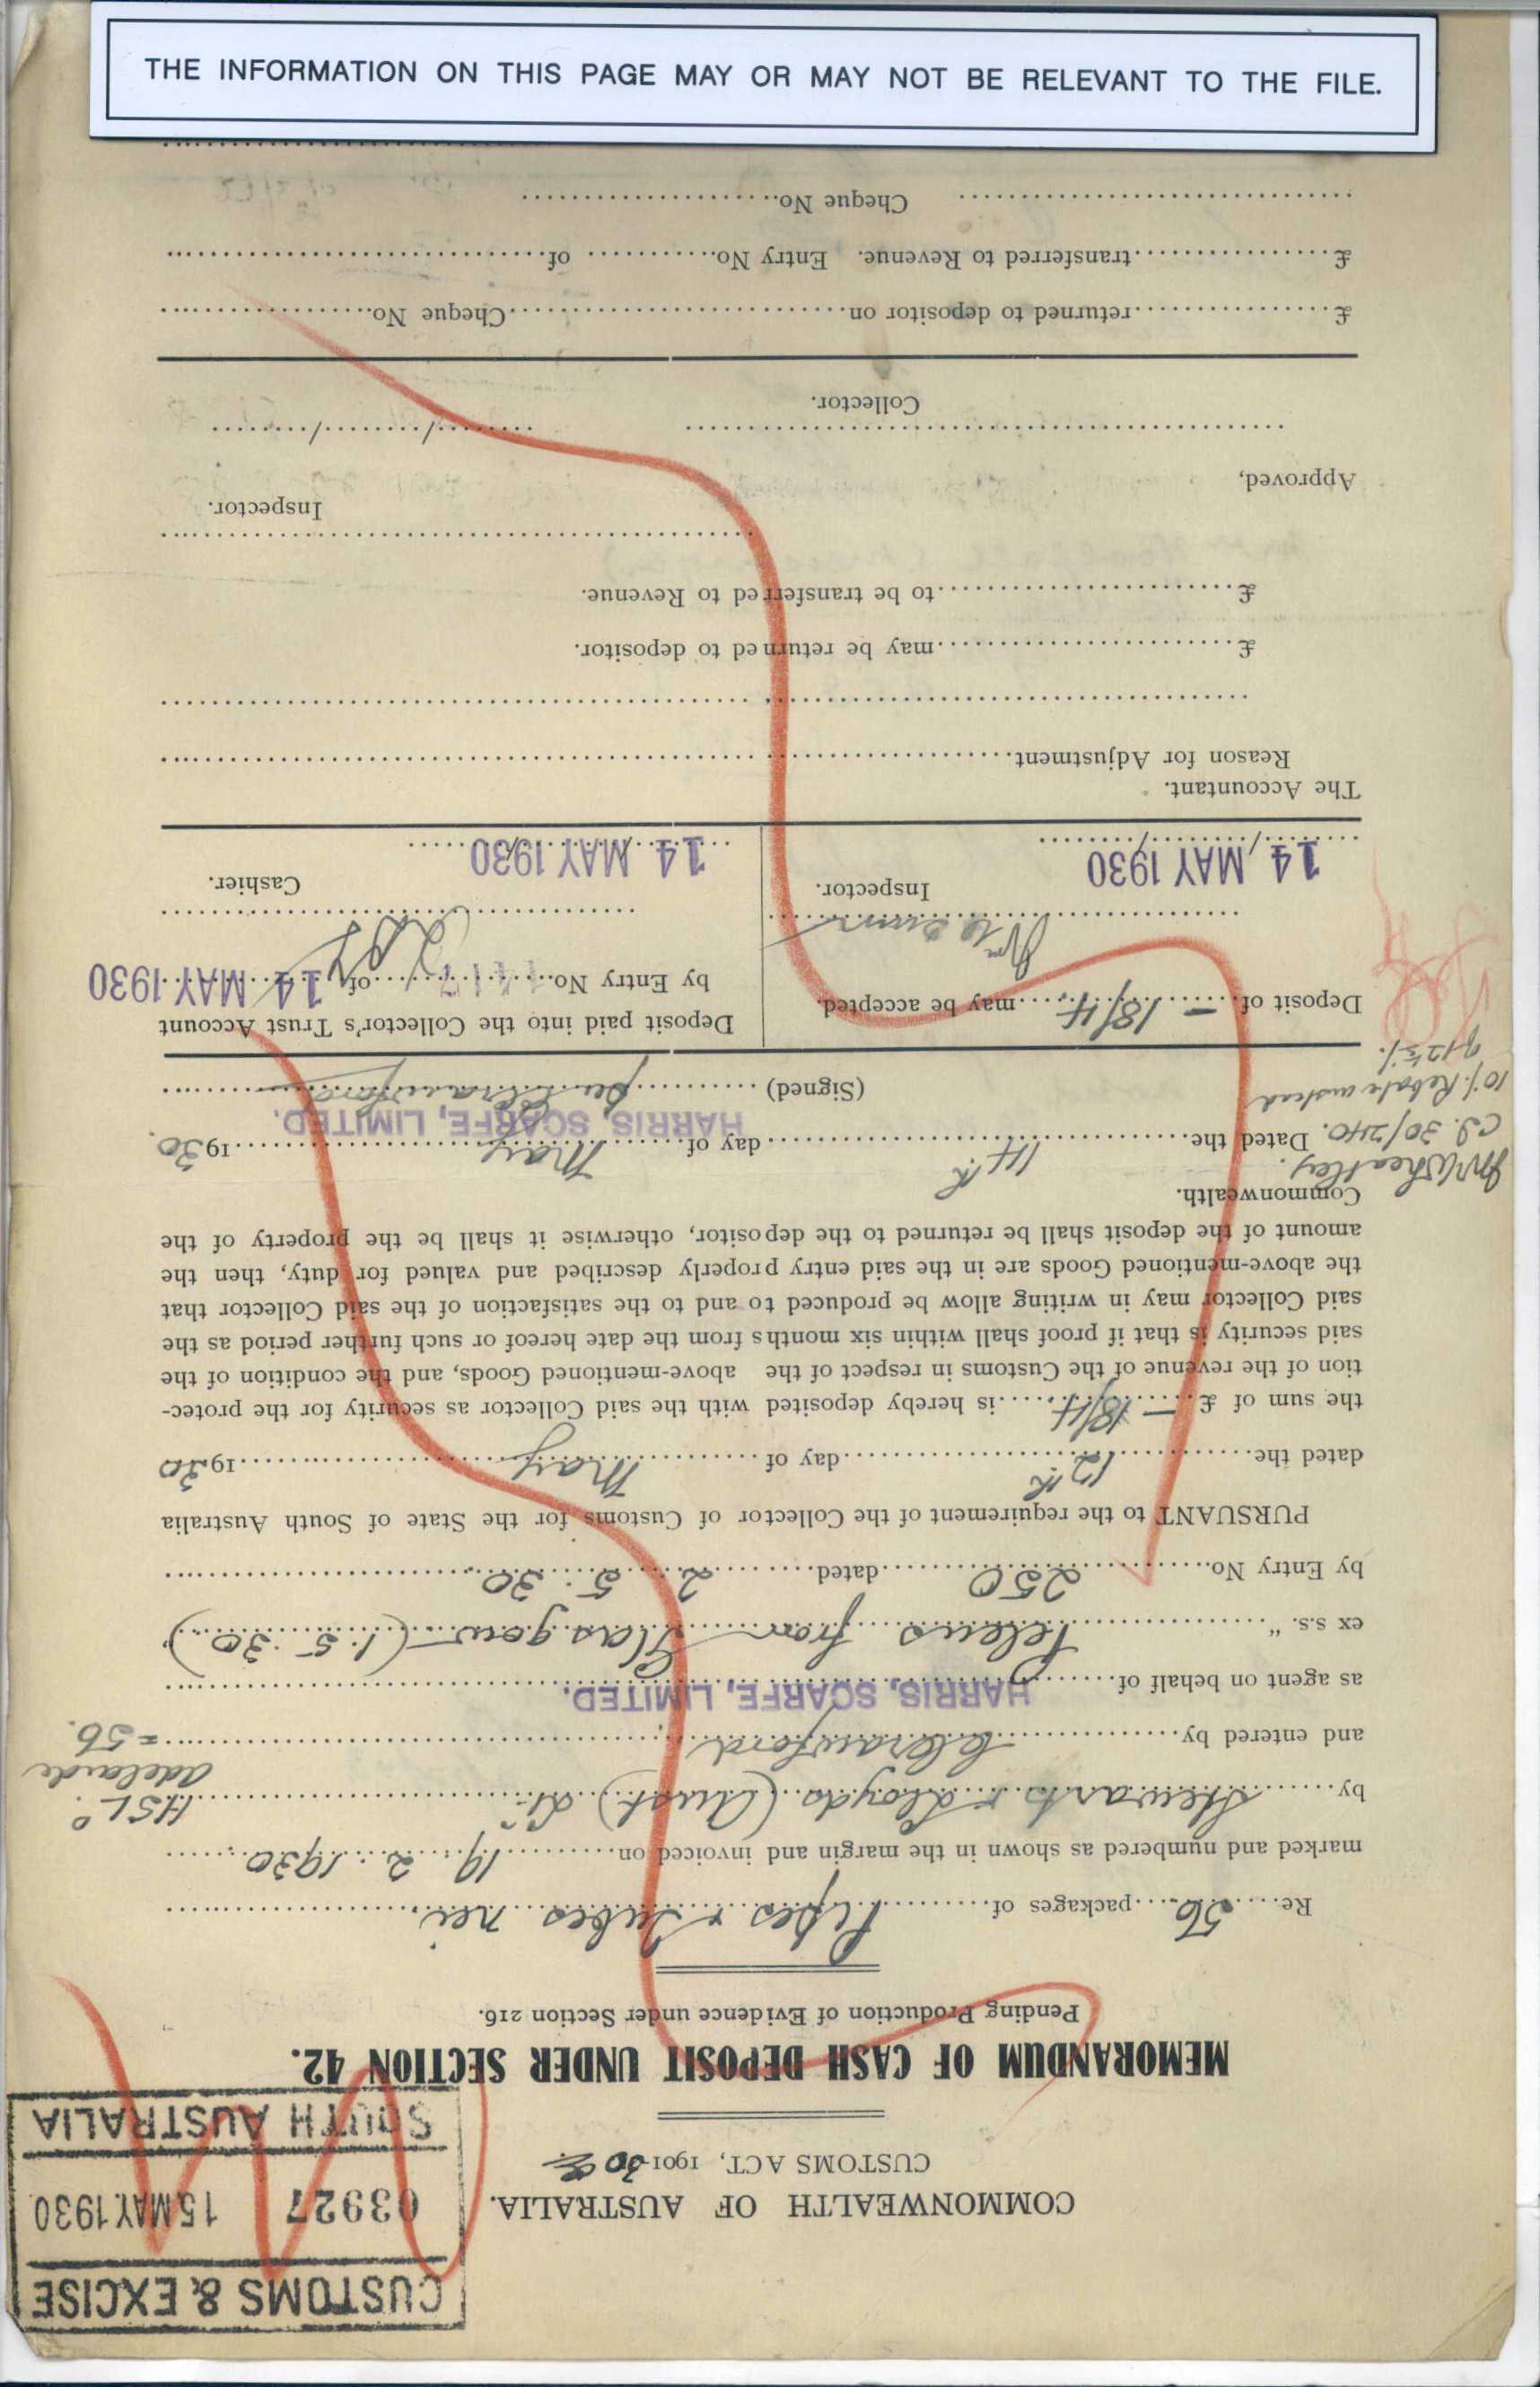 THE INFORMATION ON THIS PAGE MAY OR MAY NOT BE RELEVANT TO THE FILE.
CUSTOMS & EXCISE
03927 15 MAY 1930
SOUTH AUSTRALIA
COMMONWEALTH OF AUSTRALIA.
CUSTOMS ACT, 1901-30
MEMORANDUM OF CASH DEPOSIT UNDER SECTION 42.
Pending Production of Evidence under Section 216.
Re. 56 packages of Pipes & Tubes nei
marked and numbered as shown in the margin and invoiced on 19 2 1930
by Stewarts & Lloyds (Aust) Ld HSL
Adelaide
and entered by C Crawford = 56.
as agent on behalf of HARRIS, SCARFE, LIMITED.
ex s.s. " Peleus from Glasgow (1. 5. 30)
by Entry No. 250 dated 2. 5. 30
PURSUANT to the requirement of the Collector of Customs for the State of South Australia
dated the 12th day of May 1930
the sum of £ – 18/4 is hereby deposited with the said Collector as security for the protec-
tion of the revenue of the Customs in respect of the above-mentioned Goods, and the condition of the
said security is that if proof shall within six months from the date hereof or such further period as the
said Collector may in writing allow be produced to and to the satisfaction of the said Collector that
the above-mentioned Goods are in the said entry properly described and valued for duty, then the
amount of the deposit shall be returned to the depositor, otherwise it shall be the property of the
Commonwealth.
Mr Wheatley.
C.S. 30/240.
10% Rebate instead
of 12½%.
Dated the 14th day of May 1930.
HARRIS, SCARFE, LIMITED.
(Signed) per C Crawford
Deposit of – 18/4 may be accepted.
Inspector.
14 MAY 1930
Deposit paid into the Collector's Trust Account
by Entry No. of 14 MAY 1930
Cashier.
14 MAY 1930
The Accountant.
Reason for Adjustment
£ may be returned to depositor.
£ to be transferred to Revenue.
Inspector.
Approved,
Collector. / /
£ returned to depositor on Cheque No.
£ transferred to Revenue. Entry No. of
Cheque No.